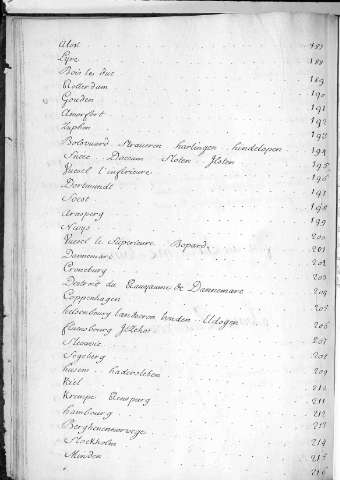 Alost 187
Lyre 188
Bois le duc 189
Rotterdam 190
Gouden 191
Amersfort 192
Zuphen 193
Bolsvaerd Stauren harlingen hindelopen 194
Snece Doccum Sloten Ilsten 195
Vuesel l'inferieure 196
Dortmundt 197
Soest 198
Arasperg 199
Nuys 200
Vuesel le Superieure Bopard 201
Dannemarc 202
Croneburg 203
Destroit du Royaume de Dannemarc 204
Coppenhagen 205
helsenbourg Landscron 206
Flensbourg 207
Slesvic 208
Segeberg
husem hadersleben 209
Kiel 210
Krempe Rensperg 211
hambourg 212
Berghenennorvege 213
Stockholm 214
Minden 215
216